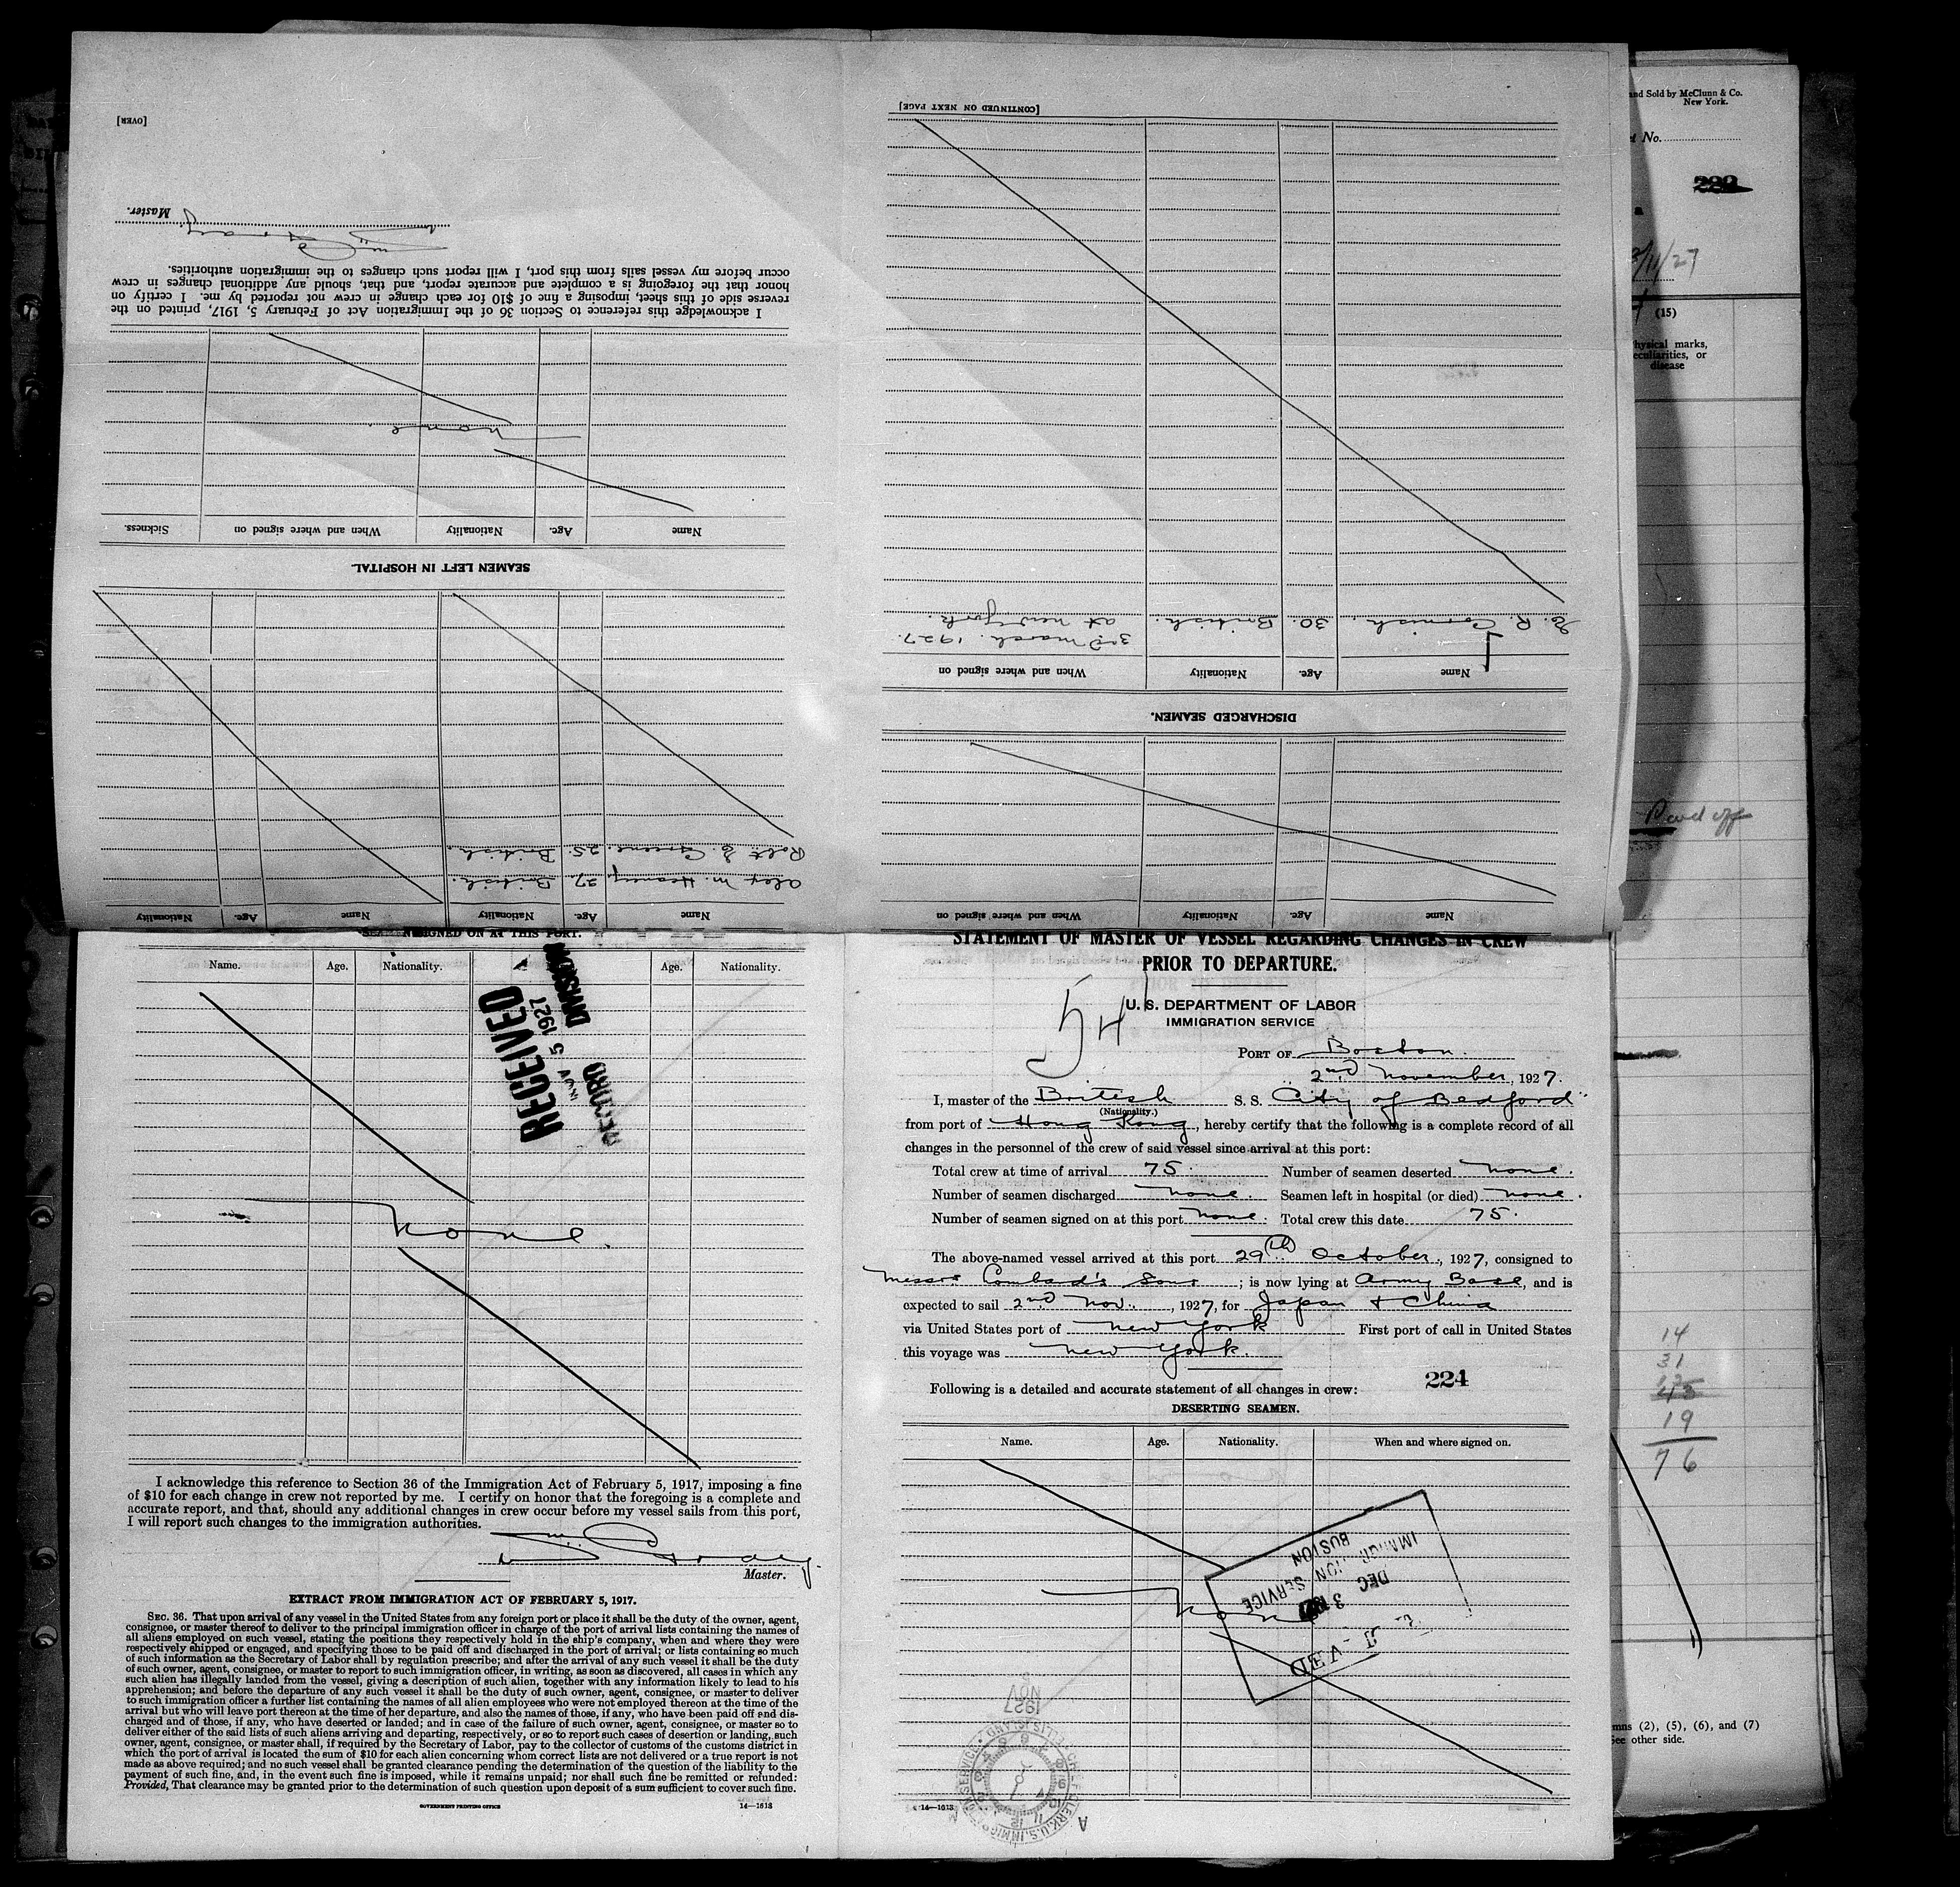 and Sold by McClunn & Co.
New York.
No.
229
3/11/27
(15)
hysical marks,
eculiarities, or
disease
14
31
19
76
mns (2), (5), (6), and (7)
See other side.
DISCHARGED SEAMEN.
Name
Age.
Nationality
When and where signed on
Name
Age.
Nationality
When and where signed on
E. R. Cornish.
30.
British.
3rd March. 1927.
at New York.
[CONTINUED ON NEXT PAGE]
Name
Age.
Nationality
Name
Age.
Nationality
Alex M. Heaney. 27. British.
Robt. E. Greene. 25. British.
SEAMEN LEFT IN HOSPITAL.
Name
Age.
Nationality
When and where signed on
Sickness.
None.
I acknowledge this reference to Section 36 of the Immigration Act of February 5, 1917, printed on the
reverse side of this sheet, imposing a fine of $10 for each change in crew not reported by me. I certify on
honor that the foregoing is a complete and accurate report, and that, should any additional changes in crew
occur before my vessel sails from this port, I will report such changes to the immigration authorities.
Master.
[OVER]
SIGNED ON AT THIS PORT.
Name.
Age.
Nationality.
Age.
Nationality.
RECEIVED
NOV 5 1927
RECORD DIVISION
None.
I acknowledge this reference to Section 36 of the Immigration Act of February 5, 1917, imposing a fine
of $10 for each change in crew not reported by me. I certify on honor that the foregoing is a complete and
accurate report, and that, should any additional changes in crew occur before my vessel sails from this port,
I will report such changes to the immigration authorities.
Master.
EXTRACT FROM IMMIGRATION ACT OF FEBRUARY 5, 1917.
SEC. 36. That upon arrival of any vessel in the United States from any foreign port or place it shall be the duty of the owner, agent,
consignee, or master thereof to deliver to the principal immigration officer in charge of the port of arrival lists containing the names of
all aliens employed on such vessel, stating the positions they respectively hold in the ship's company, when and where they were
respectively shipped or engaged, and specifying those to be paid off and discharged in the port of arrival; or lists containing so much
of such information as the Secretary of Labor shall by regulation prescribe; and after the arrival of any such vessel it shall be the duty
of such owner, agent, consignee, or master to report to such immigration officer, in writing, as soon as discovered, all cases in which any
such alien has illegally landed from the vessel, giving a description of such alien, together with any information likely to lead to his
apprehension; and before the departure of any such vessel it shall be the duty of such owner, agent, consignee, or master to deliver
to such immigration officer a further list containing the names of all alien employees who were not employed thereon at the time of the
arrival but who will leave port thereon at the time of her departure, and also the names of those, if any, who have been paid off and dis-
charged and of those, if any, who have deserted or landed; and in case of the failure of such owner, agent, consignee, or master so to
deliver either of the said lists of such aliens arriving and departing, respectively, or so to report such cases of desertion or landing, such
owner, agent, consignee, or master shall, if required by the Secretary of Labor, pay to the collector of customs of the customs district in
which the port of arrival is located the sum of $10 for each alien concerning whom correct lists are not delivered or a true report is not
made as above required; and no such vessel shall be granted clearance pending the determination of the question of the liability to the
payment of such fine, and, in the event such fine is imposed, while it remains unpaid; nor shall such fine be remitted or refunded:
Provided, That clearance may be granted prior to the determination of such question upon deposit of a sum sufficient to cover such fine.
GOVERNMENT PRINTING OFFICE
14—1613
STATEMENT OF MASTER OF VESSEL REGARDING CHANGES IN CREW
PRIOR TO DEPARTURE.
54
U. S. DEPARTMENT OF LABOR
IMMIGRATION SERVICE
PORT OF Boston.
2nd November, 1927.
I, master of the British S. S. City of Bedford"
(Nationality.)
from port of Hong Kong, hereby certify that the following is a complete record of all
changes in the personnel of the crew of said vessel since arrival at this port:
Total crew at time of arrival 75. Number of seamen deserted None.
Number of seamen discharged None. Seamen left in hospital (or died) None.
Number of seamen signed on at this port None. Total crew this date 75.
The above-named vessel arrived at this port 29th October, 1927, consigned to
Messrs Sons; is now lying at Army Base, and is
expected to sail 2nd Nov., 1927, for Japan & China
via United States port of New York First port of call in United States
this voyage was New York.
224
Following is a detailed and accurate statement of all changes in crew:
DESERTING SEAMEN.
Name.
Age.
Nationality.
When and where signed on.
None
IMMIGRATION SERVICE
BOSTON
DEC 3
1927
NOV
14—1613